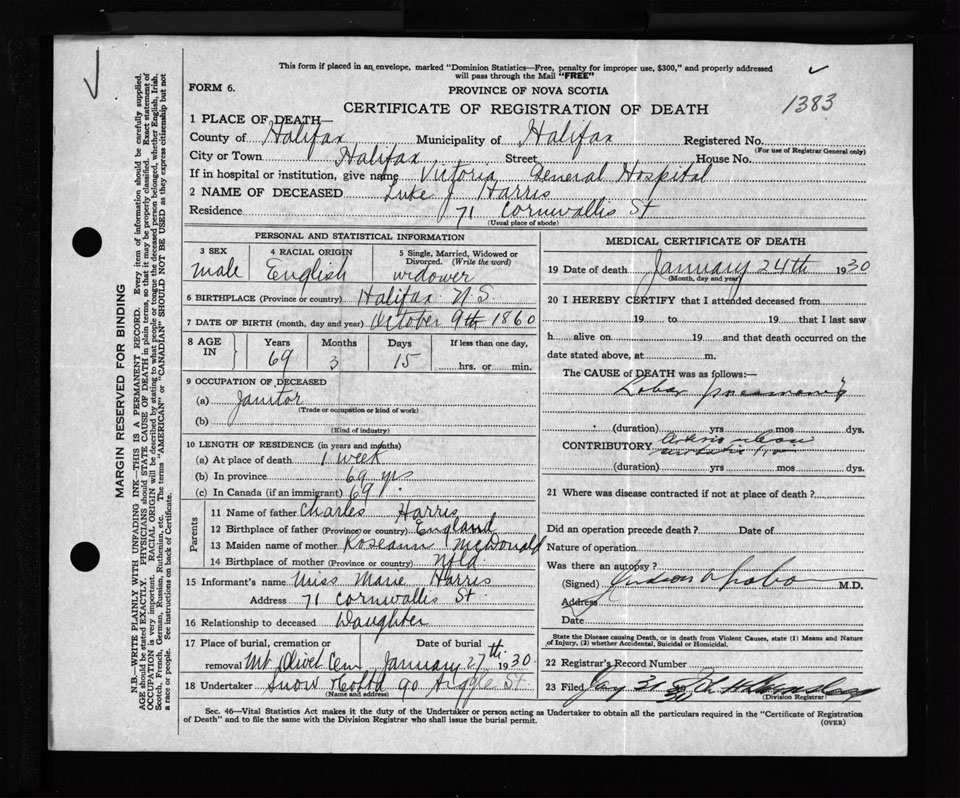 This form if placed in an envelope, marked "Dominion Statistics—Free, penalty for improper use, $300," and properly addressed
will pass through the Mail "FREE"
FORM 6.
PROVINCE OF NOVA SCOTIA
CERTIFICATE OF REGISTRATION OF DEATH
1383
1 PLACE OF DEATH—
County of Halifax Municipality of Halifax Registered No.
(For use of Registrar General only)
City or Town Halifax Street House No.
If in hospital or institution, give name Victoria General Hospital
2 NAME OF DECEASED Luke J Harris
Residence 71 Cornwallis St
(Usual place of abode)
MARGIN RESERVED FOR BINDING
N.B.—WRITE PLAINLY WITH UNFADING INK—THIS IS A PERMANENT RECORD. Every item of information should be carefully supplied.
AGE should be stated EXACTLY. PHYSICIANS should STATE CAUSE OF DEATH in plain terms, so that it may be properly classified. Exact statement of
OCCUPATION is very important. RACIAL ORIGIN will be described by stating to what people or tongue the deceased person belonged, whether English, Irish,
Scotch, French, German, Russian, Ruthenian, etc. The terms "AMERICAN" or "CANADIAN" SHOULD NOT BE USED as they express citizenship but not
a race or people. See instructions on back of Certificate.
PERSONAL AND STATISTICAL INFORMATION
3 SEX 4 RACIAL ORIGIN 5 Single, Married, Widowed or
Divorced. (Write the word)
male English widower
6 BIRTHPLACE (Province or country) Halifax N.S.
7 DATE OF BIRTH (month, day and year) October 9th 1860
8 AGE IN Years Months Days If less than one day,
69 3 15 hrs. or min.
9 OCCUPATION OF DECEASED
(a) Janitor
(Trade or occupation or kind of work)
(b)
(Kind of industry)
10 LENGTH OF RESIDENCE (in years and months)
(a) At place of death 1 week
(b) In province 69 yrs
(c) In Canada (if an immigrant) 69 yr.
Parents
11 Name of father Charles Harris
12 Birthplace of father (Province or country) England
13 Maiden name of mother Roseann McDonald
14 Birthplace of mother (Province or country) Nfld
15 Informant's name Miss Marie Harris
Address 71 Cornwallis St.
16 Relationship to deceased Daughter
17 Place of burial, cremation or Date of burial
removal Mt Olivet Cem January 27th 1930
18 Undertaker Snow & Co Ltd 90 Argyle St.
(Name and address)
MEDICAL CERTIFICATE OF DEATH
19 Date of death January 24th 1930
(Month, day and year)
20 I HEREBY CERTIFY that I attended deceased from
19 to 19 that I last saw
h alive on 19 and that death occurred on the
date stated above, at m.
The CAUSE of DEATH was as follows:—
Lobar pneumonia
(duration) yrs mos dys.
CONTRIBUTORY
(duration) yrs mos dys.
21 Where was disease contracted if not at place of death ?
Did an operation precede death ? Date of
Nature of operation
Was there an autopsy ?
(Signed) M.D.
Address
Date
State the Disease causing Death, or in death from Violent Causes, state (1) Means and Nature
of Injury, (2) whether Accidental, Suicidal or Homicidal.
22 Registrar's Record Number
23 Filed Jan 31 30
(Division Registrar)
Sec. 46—Vital Statistics Act makes it the duty of the Undertaker or person acting as Undertaker to obtain all the particulars required in the "Certificate of Registration
of Death" and to file the same with the Division Registrar who shall issue the burial permit.
(OVER)